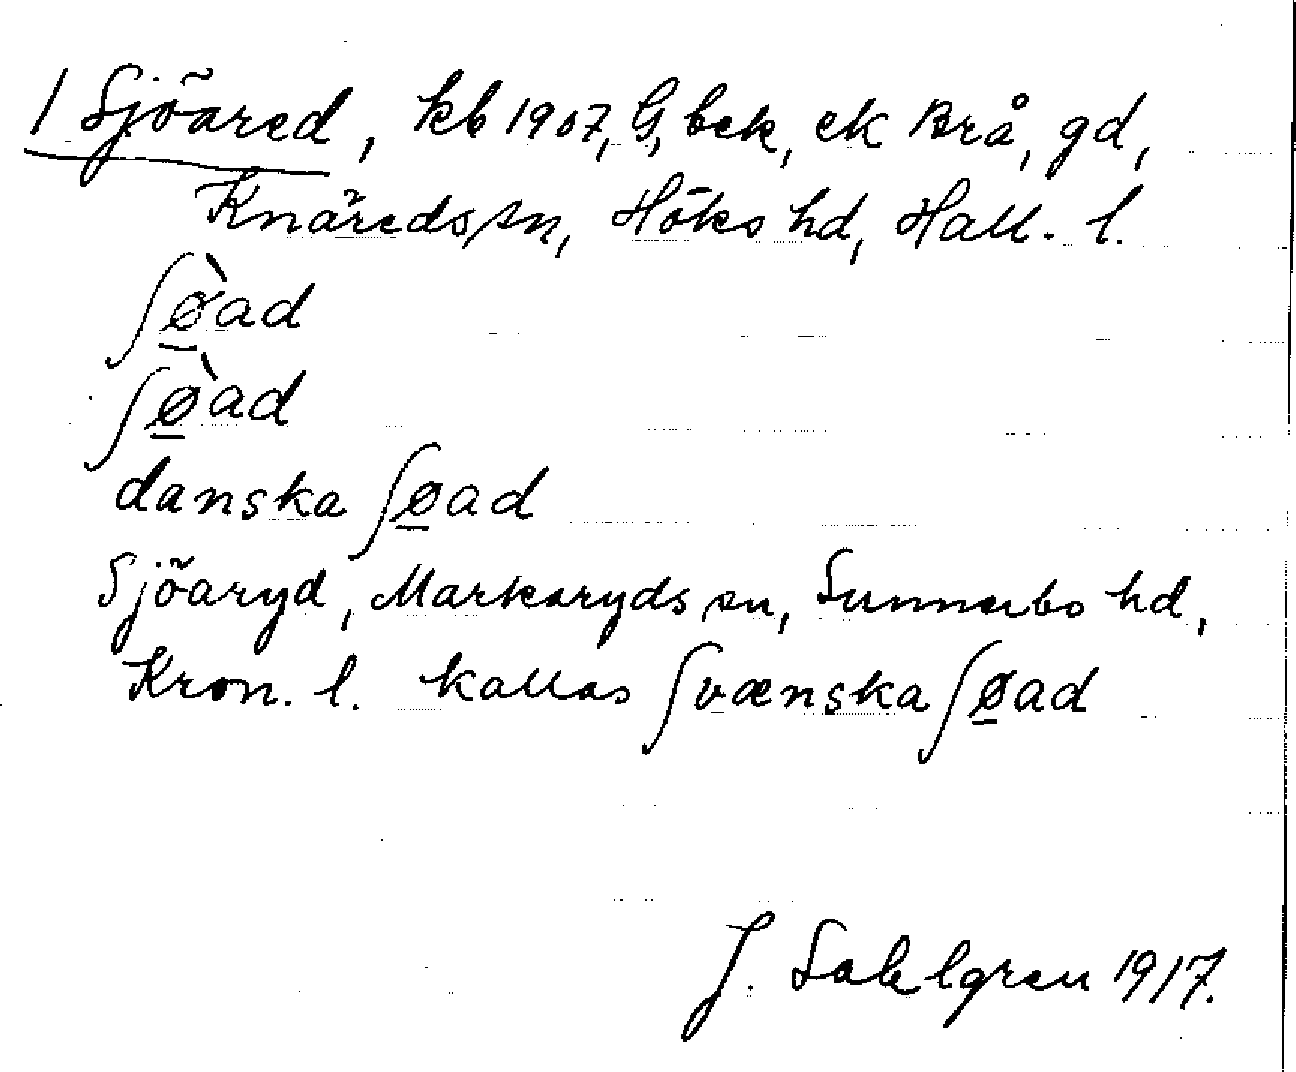 1 Sjöared, kb 1907, G, bek, ek Brå, gd,
Knäreds sn, Höks hd, Hall. l.
ʃø̲̀ad
ʃø̲̀ad
danska ʃø̲ad
Sjöaryd, Markaryds sn, Sunnerbo hd,
Kron. l. kallas ʃvænska ʃø̲ad
J. Sahlgren 1917.